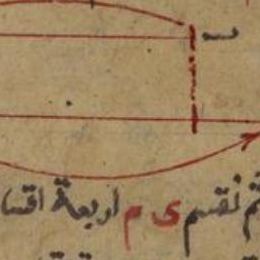 ثم نقسم ى م اربعة اقسا